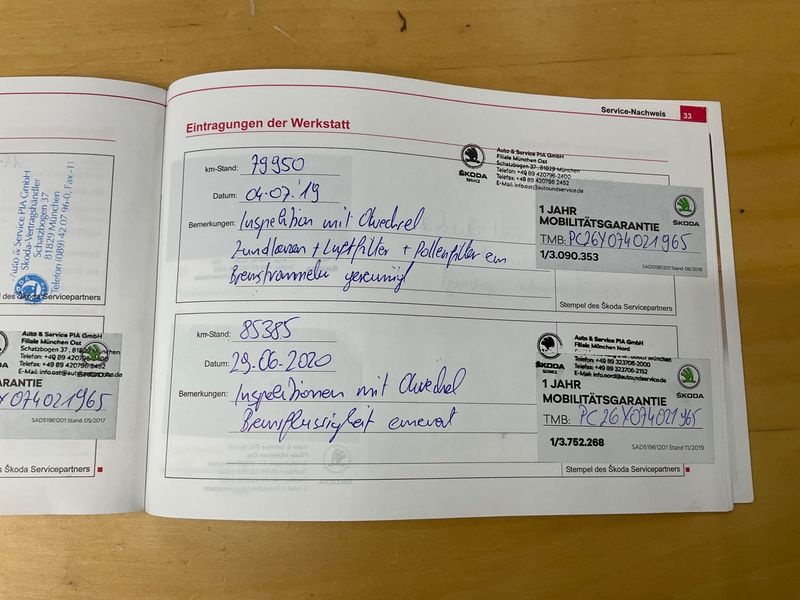 Service-Nachweis 33
Eintragungen der Werkstatt
km-Stand: 79950
Datum: 04.07.'19
Bemerkungen: Inspektion mit Ölwechsel
Zündkerzen + Luftfilter + Pollenfilter ern
Bremstrommeln gereinigt
ŠKODA
SERVICE
Auto & Service PIA GmbH
Filiale München Ost
Schatzbogen 37 · 81829 München
Telefon: +49 89 420796-2400
Telefax: +49 89 420796 2452
E-Mail: info.ost@autoundservice.de
1 JAHR
MOBILITÄTSGARANTIE
ŠKODA
TMB: PC26Y074021965
1/3.090.353
SAD51961201 Stand 06/2018
Stempel des Škoda Servicepartners
km-Stand: 85385
Datum: 29.06.2020
Bemerkungen: Inspektionen mit Ölwechsel
Bremsflüssigkeit erneuert
ŠKODA
SERVICE
Auto & Service PIA GmbH
Filiale München Nord
Telefon: +49 89 323706-2000
Telefax: +49 89 323706-2152
E-Mail: info.nord@autoundservice.de
1 JAHR
MOBILITÄTSGARANTIE
ŠKODA
TMB: PC26Y074021965
1/3.752.268
SAD51961201 Stand 11/2019
Stempel des Škoda Servicepartners
Auto & Service PIA GmbH
Skoda-Vertragshändler
Schatzbogen 37
81829 München
Telefon (089) 42 07 96-0, Fax -11
el des Škoda Servicepartners
Auto & Service PIA GmbH
Filiale München Ost
Schatzbogen 37 · 81829 München
Telefon: +49 89 420796-2400
Telefax: +49 89 420796-2452
E-Mail: info.ost@autoundservice.de
ŠKODA
ARANTIE
Y074021965
SAD51961201 Stand 05/2017
el des Škoda Servicepartners